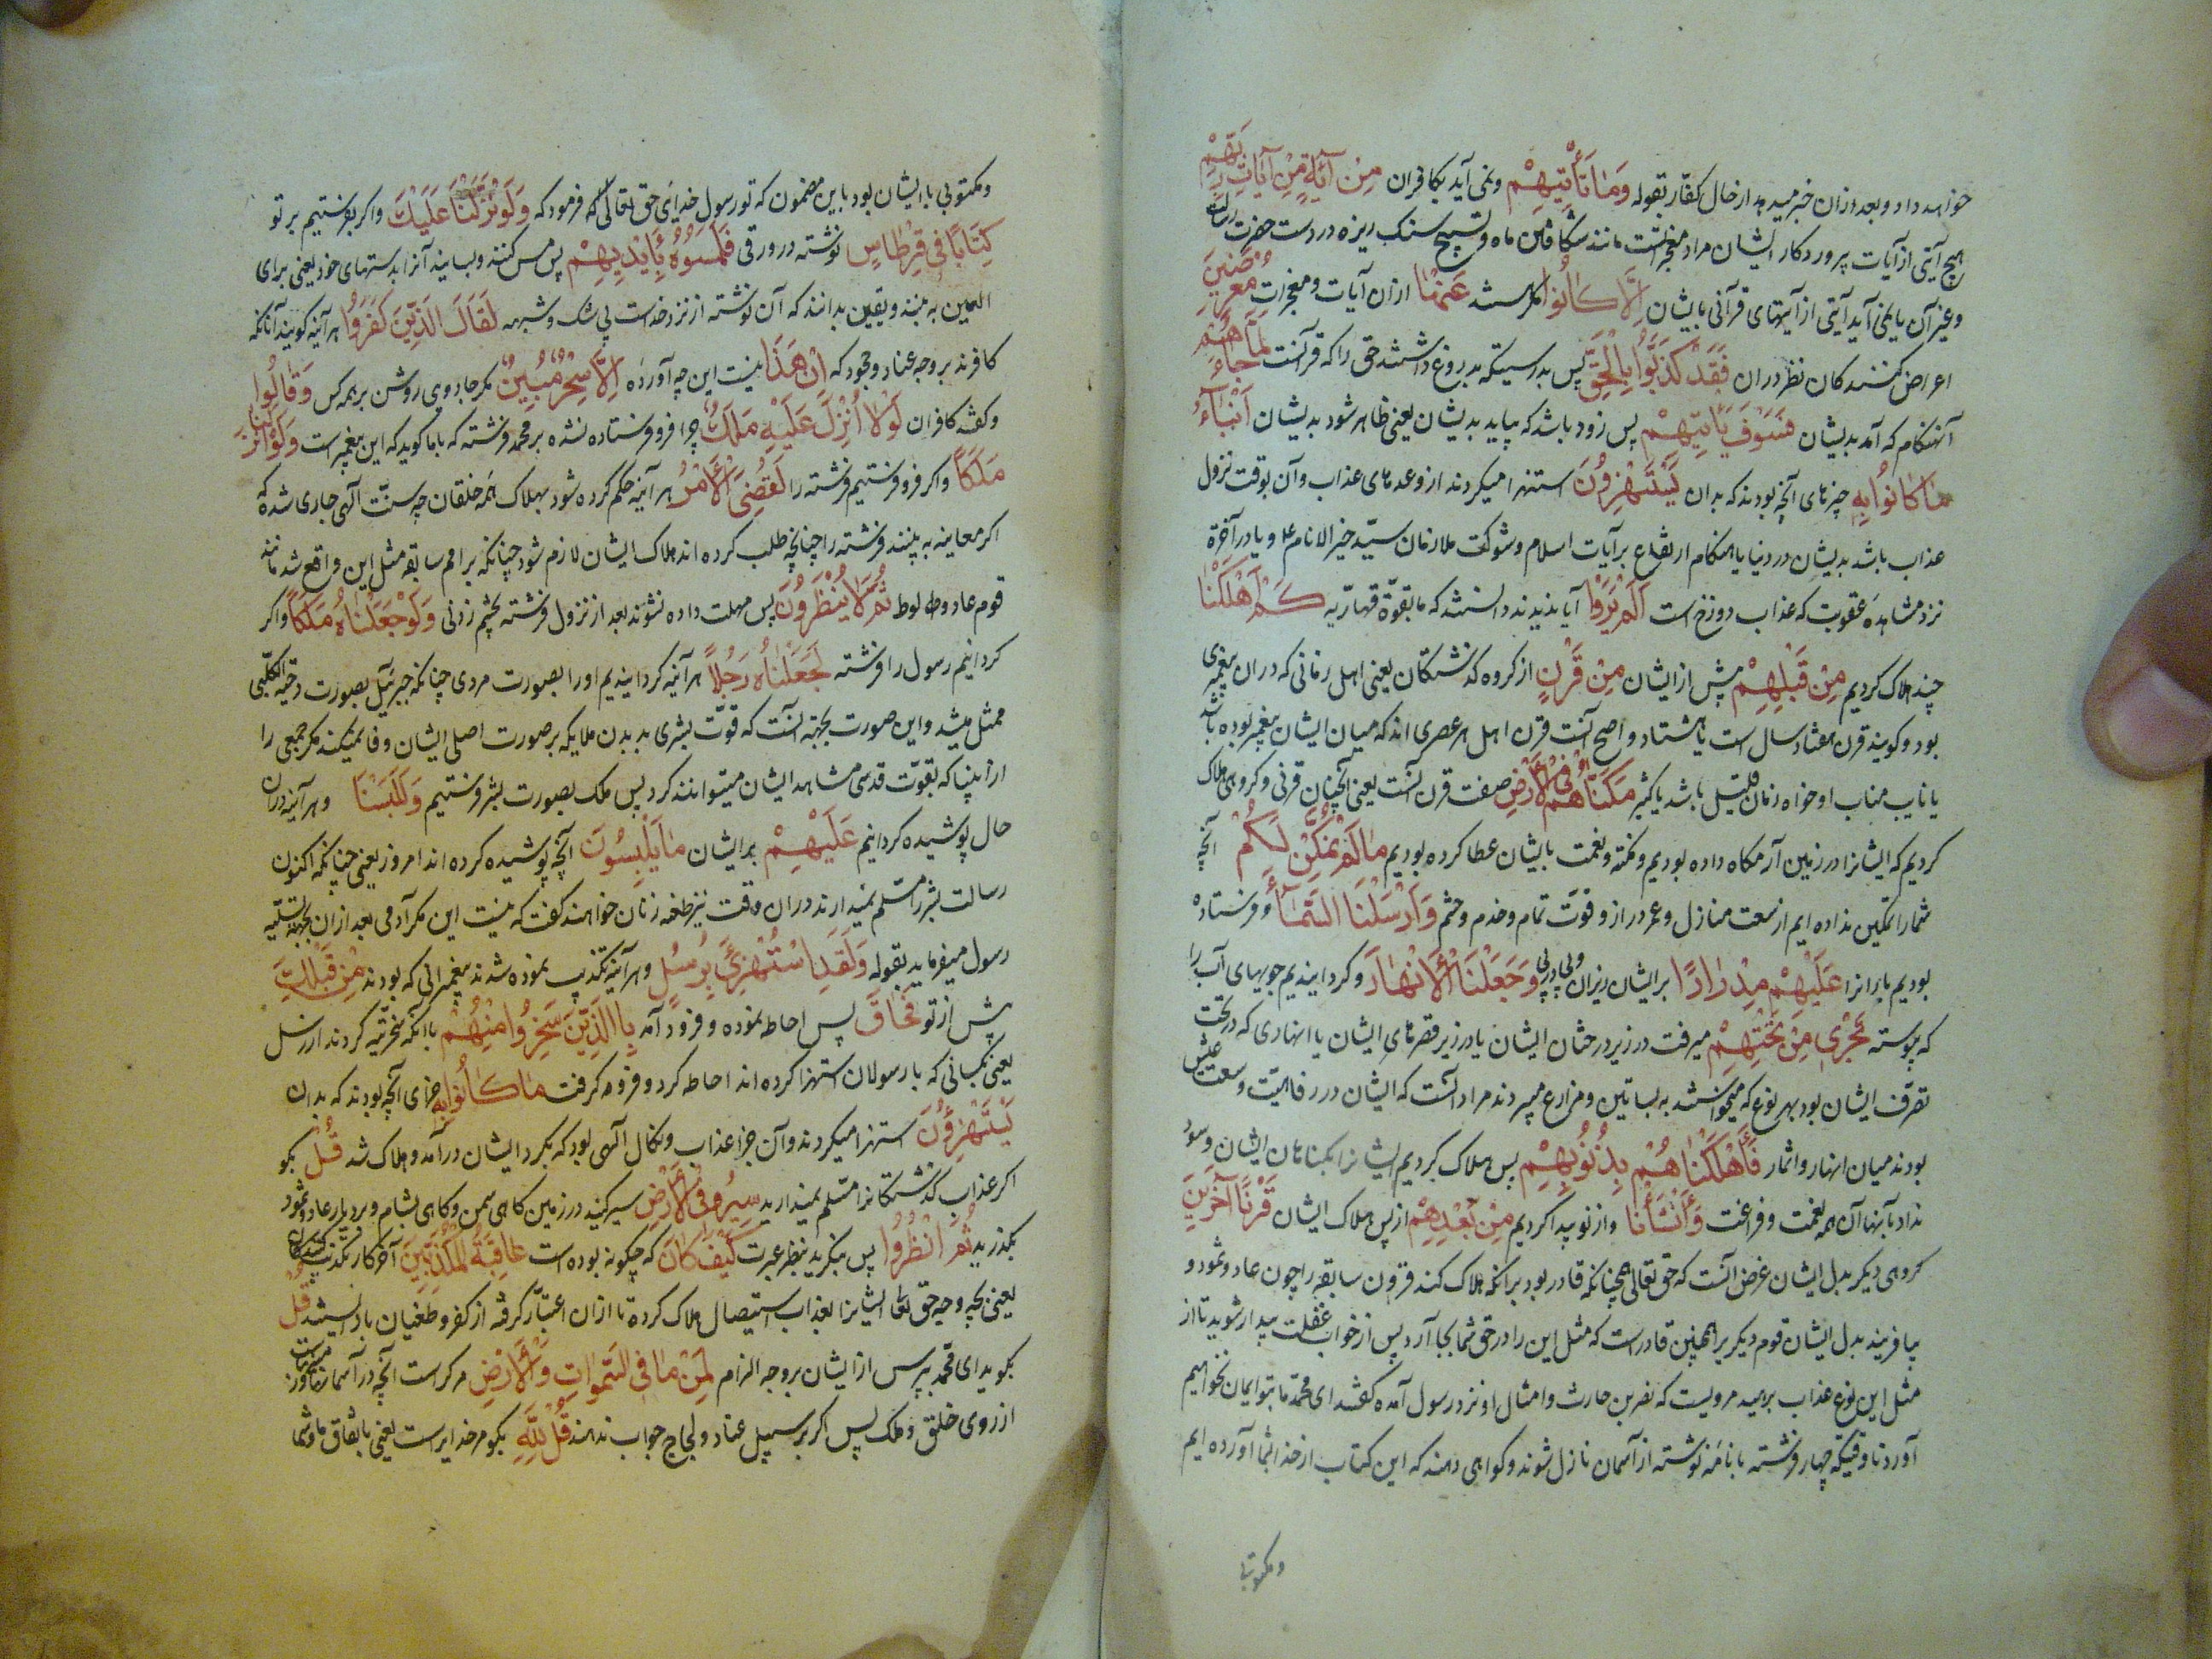 خواهد داد و بعد ازان خبر میدهد از حال کفّار بقوله وَمَا تَأْتِيهِمْ و نمی آید بکافران مِنْ آيَةٍ مِنْ آيَاتِ رَبِّهِمْ
هیچ آیتی از آیات پروردکار ایشان مراد معجزاتست مانند شکافتن ماه و تسبیح سنک ریزه در دست حضرت رسالت
و غیر آن یا نمی آید آیتی از آیتهای قرآنی بایشان اِلَّا كَانُوا مکر هستند عَنْهَا ازان آیات و معجزات مُعْرِضِينَ
اعراض کنندکان نظر دران فَقَدْ كَذَّبُوا بِالْحَقِّ پس بدرستیکه بدروغ داشتند حق را که قرآنست لَمَّا جَاءَهُمْ
آنهنکام که آمد بدیشان فَسَوْفَ يَأْتِيهِمْ پس زود باشد که بیاید بدیشان یعنی ظاهر شود بدیشان اَنْبَاءُ
مَا كَانُوا بِهِ خبرهای آنچه بودند که بدان يَسْتَهْزِؤُنَ استهزا میکردند از وعدهای عذاب و آن بوقت نزول
عذاب باشد بدیشان در دنیا یا هنکام ارتفاع برآیات اسلام و شوکت ملازمان سیّد خیر الانام علم و یا در آخرة
نزد مشاهدهٔ عقوبت که عذاب دوزخ است اَلَمْ يَرَوْا آیا ندیدند و دانستند که ما بقوّة قهّاریه كَمْ اَهْلَكْنَا
چند هلاک کردیم مِنْ قَبْلِهِمْ پیش از ایشان مِنْ قَرْنٍ از کروه کذشتکان یعنی اهل زمانی که دران پیغمبری
بود و کویند قرن هفتاد سال است یا هشتاد و اصح آنست قرن اهل هر عصری اند که میان ایشان پیغمبر بوده باشد
یا نایب مناب او خواه زمان قلیل باشد یا کثیر مَكَّنَّاهُمْ فِي الْأَرْضِ صفت قرن آنست یعنی آنچنان قرنی و کروهی هلاک
کردیم که ایشانرا در زمین آرامکاه داده بودیم و مکنه و نعمت بایشان عطا کرده بودیم مَالَمْ نُمَكِّنْ لَكُمْ آنچه
شمارا تمکین نداده ایم از سعت منازل و عمر دراز و قوّت تمام و خدم و حشم وَاَرْسَلْنَا السَّمَاءَ و فرستاده
بودیم بارانرا عَلَيْهِمْ مِدْرَارًا بر ایشان ریزان و پی در پی وَجَعَلْنَا الْأَنْهَارَ و کردانیدیم جویهای آب را
که پیوسته تَجْرِي مِنْ تَحْتِهِمْ میرفت در زیر درختان ایشان یا در زیر قصرهای ایشان یا انهاری که در تحت
تصرّف ایشان بود بهر نوع که میخواستند به بساتین و مزارع میبردند مراد آنست که ایشان در رفاهیّت و سعت عیش
بودند میان انهار و اثمار فَأَهْلَكْنَاهُمْ بِذُنُوبِهِمْ پس هلاک کردیم ایشانرا بکناهان ایشان و سود
نداد بآنها آن همه نعمت و فراغت وَأَنْشَأْنَا و از نو پیدا کردیم مِنْ بَعْدِهِمْ از پس هلاک ایشان قَرْنًا آخَرِينَ
کروهی دیکر بدل ایشان غرض آنست که حق تعالی همچنانکه قادر بود برانکه هلاک کند قرون سابقه را چون عاد و ثمود و
بیافریند بدل ایشان قوم دیکر را همچنین قادرست که مثل این را در حق شما بجا آرد پس از خواب غفلت بیدار شوید تا از
مثل این نوع عذاب برهید مرویست که نضر بن حارث و امثال او نزد رسول آمده کفتند ای محمّد ما بتو ایمان نخواهیم
آورد تا وقتیکه چهار فرشته با نامه نوشته از آسمان نازل شوند و کواهی دهند که این کتاب از خدا بشما آورده ایم
و مکتوبی
و مکتوبی با ایشان بود باین مضمون که تو رسول خدایی حق تعالی فرمود که وَلَوْ نَزَّلْنَا عَلَيْكَ و اکر بفرستیم بر تو
كِتَابًا فِي قِرْطَاسٍ نوشته در ورقی فَلَمَسُوهُ بِأَيْدِيهِمْ پس مس کنند و بسایند آنرا بدستهای خود یعنی برای
العین به بینند و یقین بدانند که آن نوشته از نزد خداست بی شک و شبهه لَقَالَ الَّذِينَ كَفَرُوا هر آینه کویند آنانکه
کافرند بر وجه عناد و جحود که اِنْ هَذَا نیست این چه آورده اِلَّا سِحْرٌ مُبِينٌ مکر جادوی روشن بر همه کس وَقَالُوا
و کفتند کافران لَوْلَا اُنْزِلَ عَلَيْهِ مَلَكٌ چرا فرو فرستاده نشده بر محمد فرشته که باما کوید که این پیغمبرست وَلَوْ اَنْزَلْنَا
مَلَكًا و اکر فرو فرستیم فرشته را لَقُضِيَ الْأَمْرُ هر آینه حکم کرده شود بهلاک همه خلقان چه سنّت الهی جاری شده که
اکر معاینه به بینند فرشته را چنانچه طلب کرده اند هلاک ایشان لازم شود چنانکه بر امم سابقه مثل این واقع شد مانند
قوم عاد و لوط ثُمَّ لَا يُنْظَرُونَ پس مهلت داده نشوند بعد از نزول فرشته بچشم زدنی وَلَوْ جَعَلْنَاهُ مَلَكًا و اکر
کردانیم رسول را فرشته لَجَعَلْنَاهُ رَجُلًا هر آینه کردانیدیم اورا بصورت مردی چنانکه جبرئیل بصورت دحیة الکلبی
ممثل میشد و این صورت بجهة آنست که قوّت بشری بدیدن ملایکه بر صورت اصلی ایشان وفا نمیکند مکر جمعی را
از انبیا که بقوّت قدسی مشاهد ایشان میتوانند کرد پس ملک بصورت بشر فرستیم وَلَلَبَسْنَا و هر آینه دران
حال پوشیده کردانیم عَلَيْهِمْ بر ایشان مَا يَلْبِسُونَ آنچه پوشیده کرده اند امروز یعنی چنانکه اکنون
رسالت بشر را مسلّم نمیدارند دران وقت نیز طعنه زنان خواهند کفت که نیست این مکر آدمی بعد ازان بجهة تسلّیه
رسول میفرماید بقوله وَلَقَدِ اسْتُهْزِئَ بِرُسُلٍ و هر آینه تکذیب نموده شدند پیغمبرانی که بودند مِنْ قَبْلِكَ
پیش از تو فَحَاقَ پس احاطه نموده و فرود آمد بِالَّذِينَ سَخِرُوا مِنْهُمْ با آنکه سخریّه کردند از رسل
یعنی بکسانی که با رسولان استهزا کرده اند احاطه کرد و فرو کرفت مَا كَانُوا بِهِ جزای آنچه بودند که بدان
يَسْتَهْزِؤُنَ استهزا میکردند و آن جزا عذاب و نکال الهی بود که بکرد ایشان درآمد و هلاک شد قُلْ بکو
اکر عذاب کذشتکانرا مسلّم نمیدارید سِيرُوا فِي الْأَرْضِ سیر کنید در زمین کاهی بیمن و کاهی بشام و بر دیار عاد و ثمود
بکذرید ثُمَّ انْظُرُوا پس بنکرید بنظر عبرت كَيْفَ كَانَ که چکونه بوده است عَاقِبَةُ الْمُكَذِّبِينَ آخر کار تکذیب کنندکان
یعنی بچه وجه حق تعالی ایشانرا بعذاب استیصال هلاک کرده تا ازان اعتبار کرفته از کفر و طغیان باز ایستند قُلْ
بکوید ای محمّد بپرس از ایشان بر وجه الزام لِمَنْ مَا فِي السَّمٰوَاتِ وَالْأَرْضِ مر کراست آنچه در آسمانها و زمین است
از روی خلق و ملک پس اکر بر سبیل عناد و لجاج جواب ندهند قُلْ لِلّٰهِ بکو مر خدایراست یعنی باتفاق ما و شما